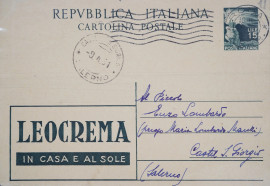 REPVBBLICA ITALIANA
CARTOLINA POSTALE
15
LEOCREMA
IN CASA E AL SOLE
Al Piccolo
Enzo Lombardo
(presso Maria Lombardo
Castel S. Giorgio
(Salerno)